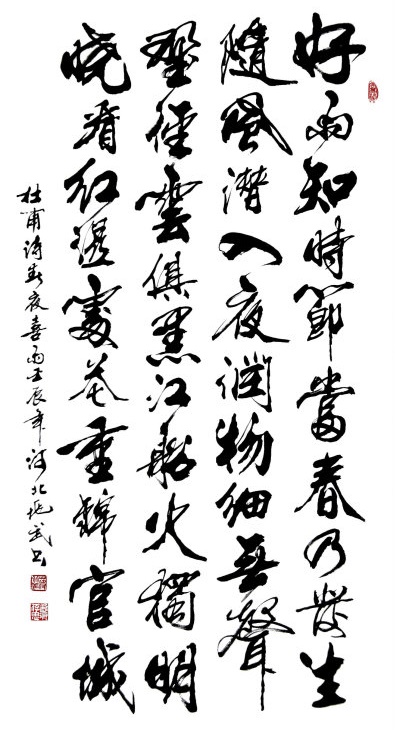 好雨知時節當春乃發生
隨風潛入夜潤物細無聲
野徑雲俱黑江船火獨明
曉看紅濕處花重錦官城
杜甫詩春夜喜雨壬辰年河北武书